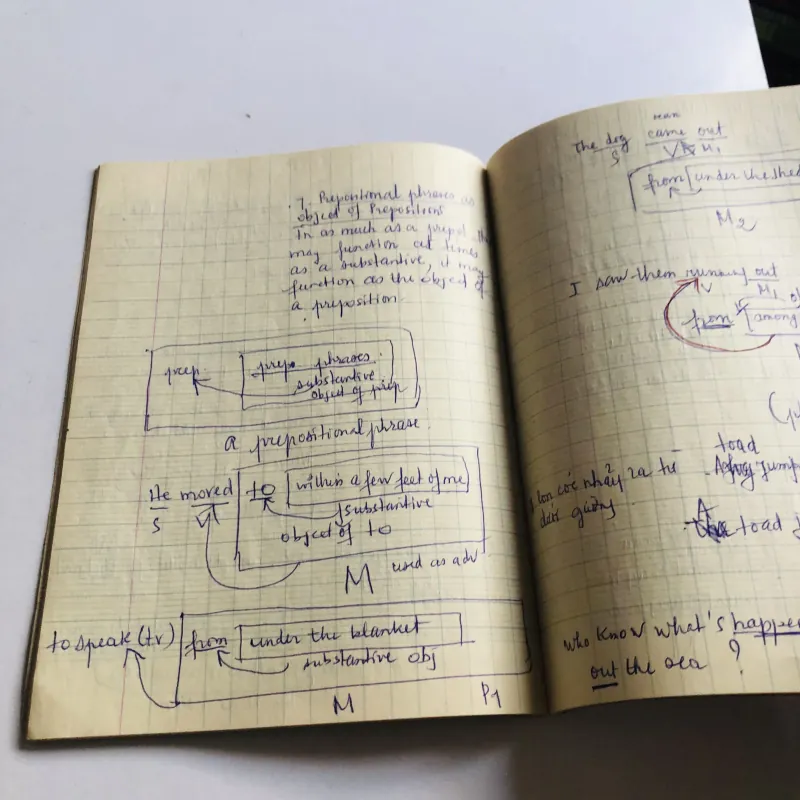 7. Prepositional phrases as
object of Prepositions
In as much as a prepol
may function at times
as a substantive, it may
function as the object of
a preposition.
prep. prep. phrases.
substantive
object of prep
a prepositional phrase.
He moved to within a few feet of me
S V substantive
object of to
M used as adv
to speak (tv) from under the blanket
substantive obj
M P1
The dog came out
S V M1
from under the shed
M2
I saw them running out
V M1
from among
con cóc nhảy ra từ
dưới giường
toad
jump
A toad j
who know what's happen
out the sea ?